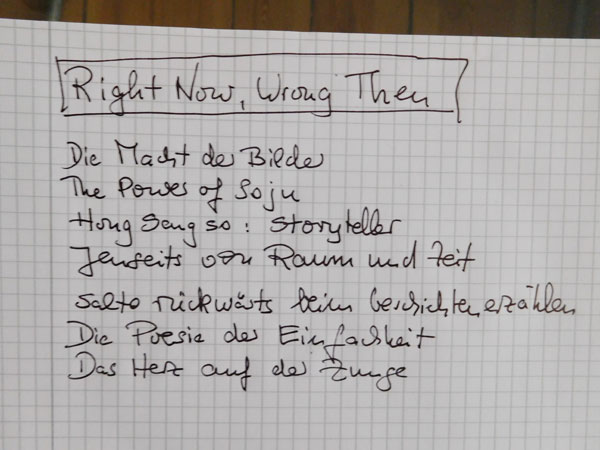 Right Now, Wrong Then
Die Macht der Bilder
The Power of Soju
Hong Sang so: Storyteller
Jenseits von Raum und Zeit
Salto rückwärts beim Geschichtenerzählen
Die Poesie der Einfachheit
Das Herz auf der Zunge